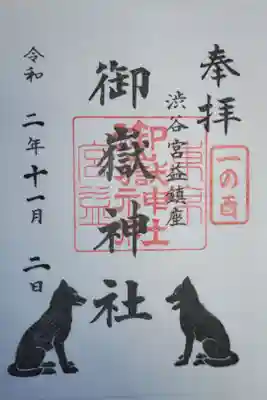 奉拝
一の酉
渋谷宮益鎮座
御嶽神社
令和二年十一月二日